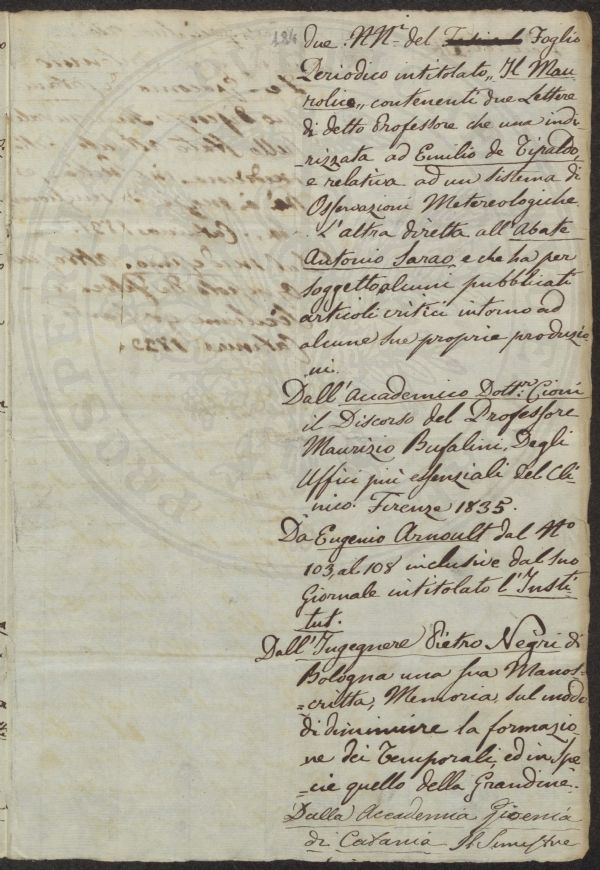 184
due NNⁱ del Foglio
Periodico intitolato „Il Mau-
rolico„ contenenti due Lettere
di detto Professore che una indi-
rizzata ad Emilio de Tipaldo,
e relativa ad un sistema di
Osservazioni Metereologiche.
L'altra diretta all'Abate
Antonio Sarao, e che ha per
soggetto alcuni pubblicati
articoli critici intorno ad
alcune sue proprie produzio
ni.
Dall'Accademico Dottʳ Cioni
il Discorso del Professore
Maurizio Bufalini, Degli
Uffici più essenziali del Cli-
nico. Firenze 1835.
Da Eugenio Arnoult dal Nº
103, al 108 inclusive dal suo
Giornale intitolato l'Insti
tut.
Dall'Ingegnere Pietro Negri di
Bologna una sua Manos-
=critta, Memoria, sul modo
di diminuire la formazio
ne dei Temporali, ed in Spe
=cie quello della Grandine.
Dalla Accademia Gioenia
di Catania Il Simestre